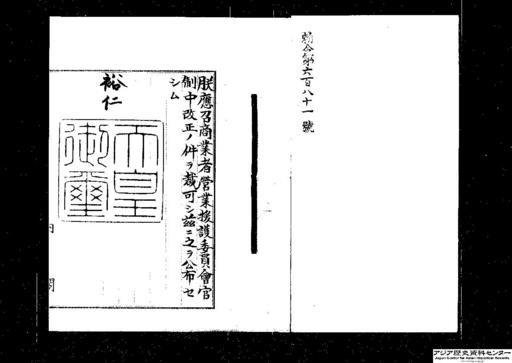 勅令第六百八十一號
朕應召商業者營業援護委員會官
制中改正ノ件ヲ裁可シ茲ニ之ヲ公布セ
シム
裕仁
天皇御璽
内閣
アジア歴史資料センター
Japan Center for Asian Historical Records